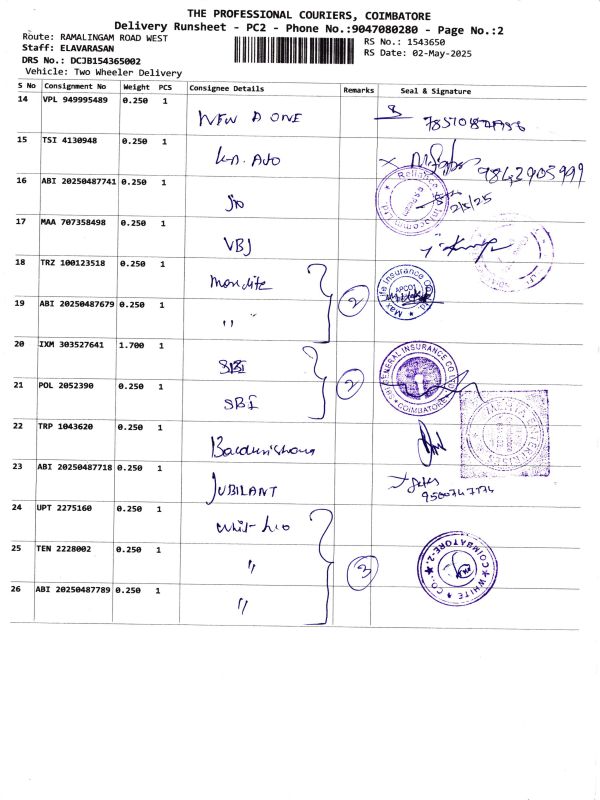 THE PROFESSIONAL COURIERS, COIMBATORE
Delivery Runsheet - PC2 - Phone No.:9047080280 - Page No.:2
Route: RAMALINGAM ROAD WEST
RS No.: 1543650
Staff: ELAVARASAN
RS Date: 02-May-2025
DRS No.: DCJB154365002
Vehicle: Two Wheeler Delivery
S No Consignment No Weight PCS Consignee Details Remarks Seal & Signature
14 VPL 949995489 0.250 1
NEW D ONE
15 TSI 4130948 0.250 1
9842905999
16 ABI 20250487741 0.250 1
Jio
2/5/25
17 MAA 707358498 0.250 1
VBJ
18 TRZ 100123518 0.250 1
19 ABI 20250487679 0.250 1
" 2
Max Life Insurance Co. Ltd.
20 IXM 303527641 1.700 1
SBI
21 POL 2052390 0.250 1
SBI 2
SBI GENERAL INSURANCE CO LTD
COIMBATORE
22 TRP 1043620 0.250 1
23 ABI 20250487718 0.250 1
JUBILANT
24 UPT 2275160 0.250 1
25 TEN 2228002 0.250 1
" 3
WHITE & CO., COIMBATORE-2.
26 ABI 20250487789 0.250 1
"